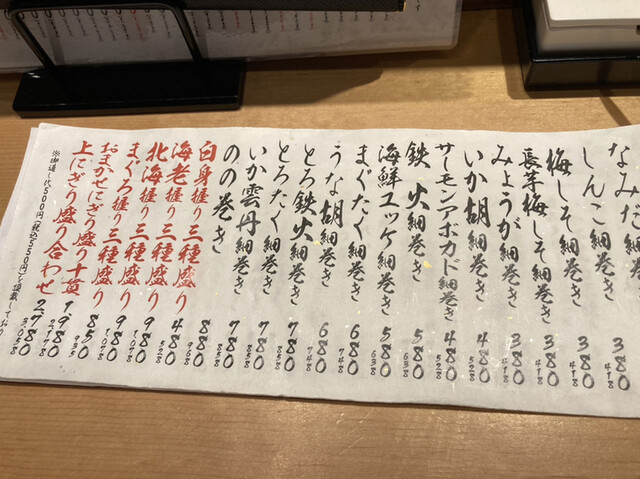 なみだ細巻
しんこ細巻き 380 418
梅しそ細巻き 380 418
長芋梅しそ細巻き 380 418
みょうが細巻き 380 418
いか胡細巻き 480 528
サーモンアボカド細巻き 480 528
鉄火細巻き 580 638
海鮮ユッケ細巻き 580 638
まぐたく細巻き 680 748
うな胡細巻き 680 748
とろ鉄火細巻き 780 858
とろたく細巻き 780 858
いか雲丹細巻き 780 858
のの巻き 880 968
白身握り三種盛り 480 528
海老握り三種盛り 980 1,078
北海握り三種盛り 980 1,078
まぐろ握り三種盛り 850 935
おまかせにぎり盛り十貫 1,980 2,178
上にぎり盛り合わせ 2,780 3,058
※御通し代500円(税込550円)を頂戴しており